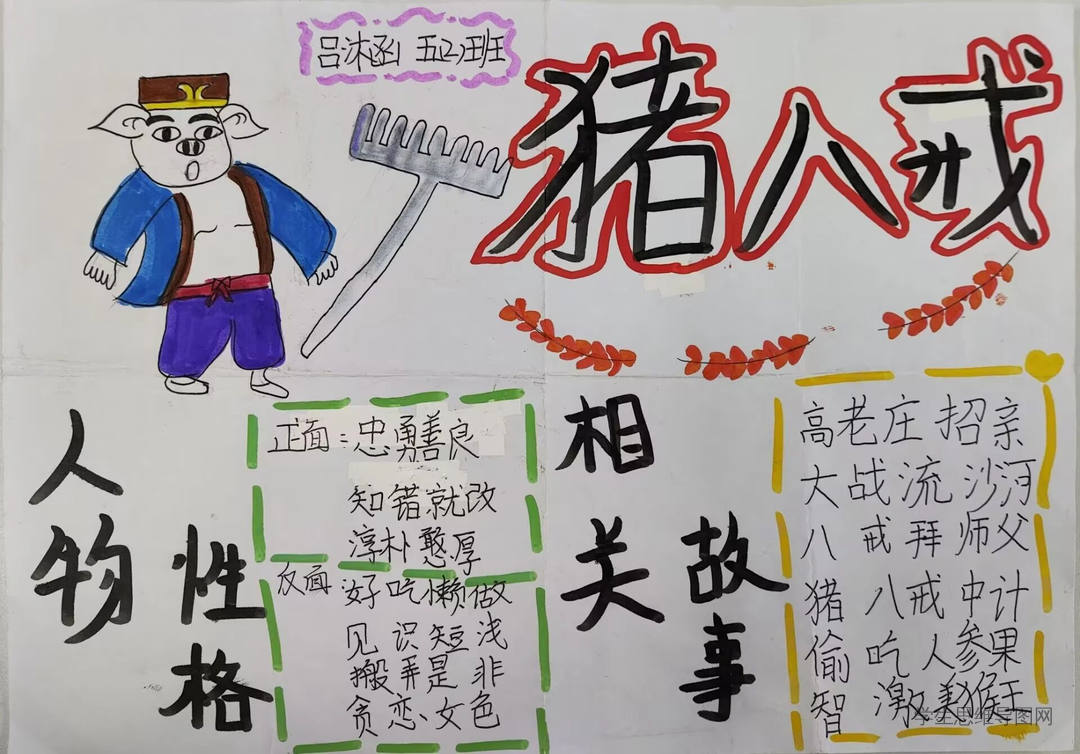 吕沐函 五(2)班
猪八戒
人物
性格
正面：忠勇善良
知错就改
淳朴憨厚
反面 好吃懒做
见识短浅
搬弄是非
贪恋女色
相关
故事
高老庄招亲
大战流沙河
八戒拜师父
猪八戒中计
偷吃人参果
智激美猴王
学生思维导图网